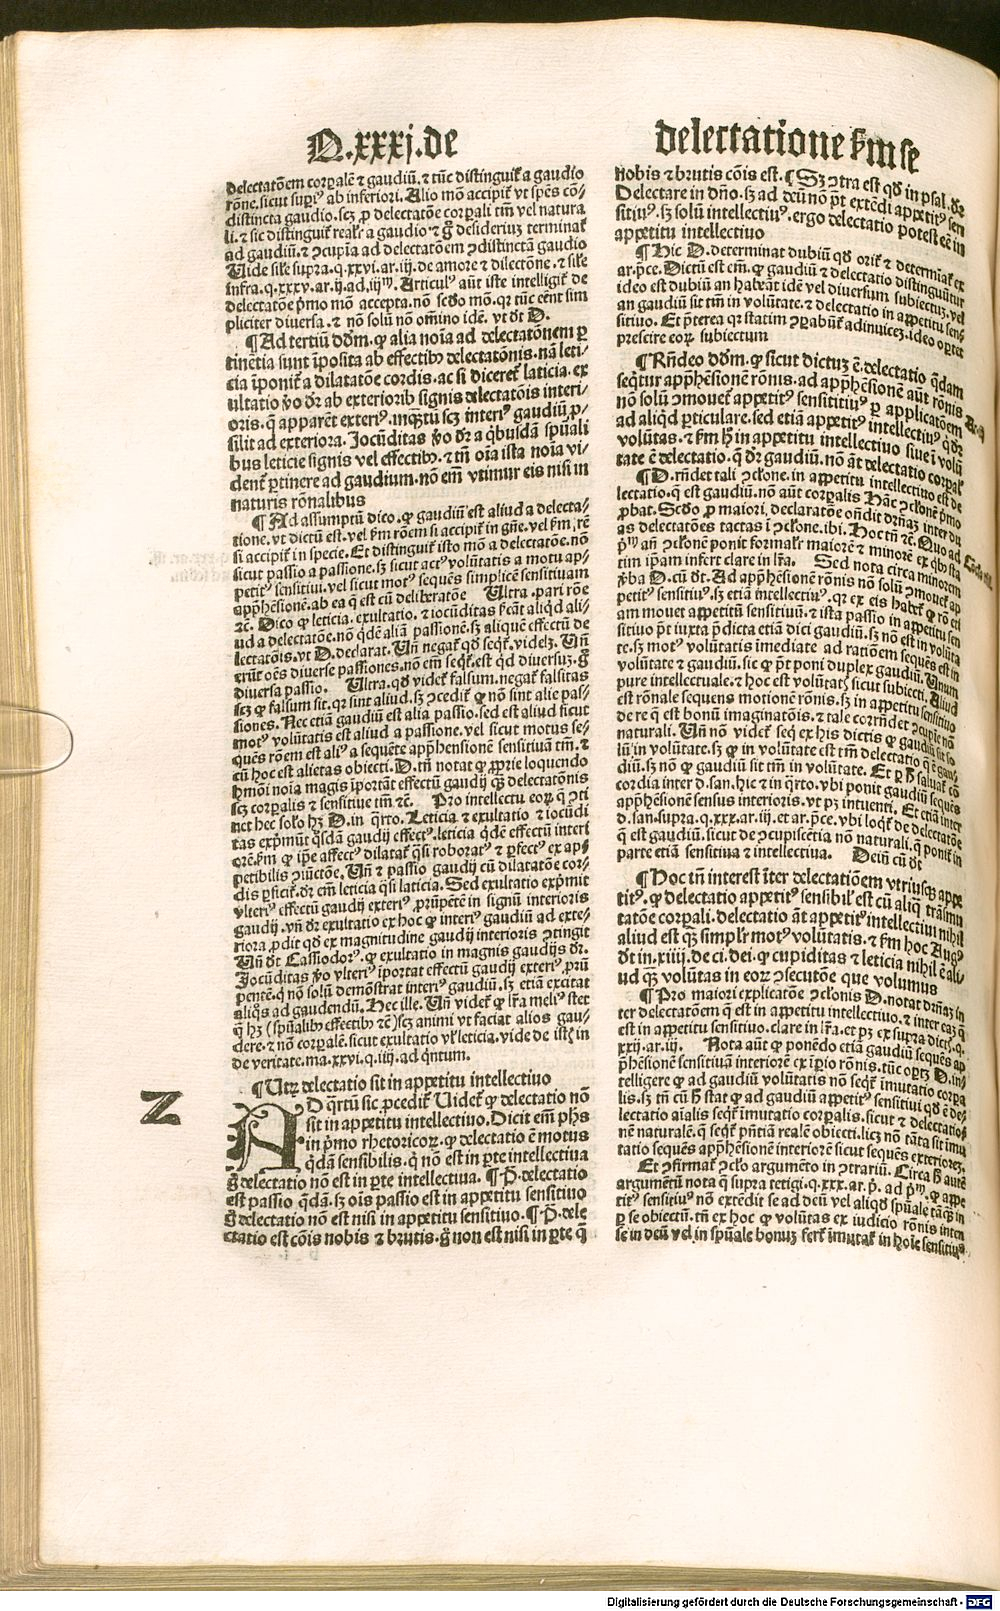 Q.xxxj.de
delectatione ẜm se
delectatōem corꝑalē ⁊ gaudiū. ⁊ tūc distinguit̄ a gaudio
rōne.sicut supi⁹ ab inferiori. Alio mō accipit̄ vt spēs cō-
distincta gaudio.scꝫ ꝓ delectatōe corꝑali tm̄ vel natura
li.⁊ sic distinguit̄ realr̄ a gaudio ⁊ ḡ desideriuꝫ terminat̄
ad gaudiū.⁊ ꝯcupīa ad delectatōem ꝯdistinctā gaudio
Vide sile supra.q.xxvi.ar.iij.de amore ⁊ dilectōne.⁊ sile
infra.q.xxxv.ar.ij.ad.iijᵐ. Articul⁹ aūt iste intelligit̄ de
delectatōe pͥmo mō accepta.nō sc̄do mō.qꝛ tūc eēnt sim
pliciter diuersa.⁊ nō solū nō om̄ino idē. vt d̄t D.
¶Ad tertiū dd̄m.ꝙ alia noīa ad delectatōnem ꝑ
tinētia sunt īposita ab effectibꝰ delectatōnis.nā leti-
cia īponit̄ a dilatatōe cordis.ac si diceret̄ laticia.ex
ultatio ꝟo dr̄ ab exterioribꝰ signis delectatōis interi-
oris.q̄ apparēt exteri⁹.inq̄ꝫtū scꝫ interi⁹ gaudiū ꝓ-
silit ad exteriora. Iocūditas ꝟo dr̄ a qͥbusdā spūali
bus leticie signis vel effectibꝰ.⁊ tn̄ oīa ista noīa vi-
dent̄ ꝑtinere ad gaudium.nō em̄ vtimur eis nisi in
naturis rōnalibus
¶Ad assumptū dico.ꝙ gaudiū est aliud a delecta-
tione.vt dictū est.vel ẜm rōem si accipit̄ in gn̄e.vel ẜm rē
si accipit̄ in specie. Et distinguit̄ isto mō a delectatōe.nō
sicut passio a passione.sꝫ sicut act⁹ volūtatis a motu ap-
petit⁹ sensitiui.vel sicut mot⁹ sequēs simplicē sensitiuam
apphēsionē.ab ea q̄ est cū deliberatōe Vltra.pari rōe
⁊c̄. Dico ꝙ leticia.exultatio.⁊ iocūditas dicāt aliqͥd ali-
ud a delectatōe.nō qͥdē aliā passionē.sꝫ aliquē effectū de
lectatōis.vt D.declarat. Vn̄ negat̄ qd̄ seqͥt̄.videlꝫ. Vn̄
erūt oēs diuerse passiones.nō em̄ seqͥt̄.est qͥd diuersuꝫ.ḡ
diuersa passio. Vltra.qd̄ videt̄ falsum.negat̄ falsitas
scꝫ ꝙ falsum sit.qꝛ sunt aliud.sꝫ ꝯcedit̄ ꝙ nō sint alie pas-
siones. Nec etiā gaudiū est alia passio.sed est aliud sicut
mot⁹ volūtatis est aliud a passione.vel sicut motus se-
quēs rōem est ali⁹ a sequēte apphēnsionē sensitiuā tm̄.⁊
cū hoc est alietas obiecti. D.tn̄ notat ꝙ ꝓprie loquendo
hmōi noīa magis īportāt effectū gaudij qꝫ delectatōnis
scꝫ corꝑalis ⁊ sensitiue tm̄ ⁊c̄. Pro intellectu eoꝝ q̄ ꝯti
net hec solo hꝫ D.in q̄rto. Leticia ⁊ exultatio ⁊ iocūdi
tas exprimūt qͦsdā gaudij effect⁹.leticia qͥdē effectū interi
orē.ẜm ꝙ ipse affect⁹ dilatat̄ qͣsi roborat⁹ ⁊ ꝑfect⁹ ex ap-
petibilis ꝯiūctōe. Vn̄ ⁊ passio gaudij cū dilatatōe cor-
dis ꝑficit̄.dr̄ em̄ leticia qͣsi laticia. Sed exultatio expͥmit
vlteri⁹ effectū gaudij exteri⁹.ꝓrūpētē in signū interioris
gaudij.vn̄ dr̄ exultatio ex hoc ꝙ interi⁹ gaudiū ad exte-
riora ꝓdit qd̄ ex magnitudine gaudij interioris ꝯtingit
Vn̄ d̄t Cassiodor⁹.ꝙ exultatio in magnis gaudijs dr̄.
Iocūditas ꝟo vlteri⁹ īportat effectū gaudij exteri⁹.ꝓrū
pentē.q̄ nō solū demōstrat interi⁹ gaudiū.sꝫ etiā excitat
aliqͦs ad gaudendū. Hec ille. Vn̄ videt̄ ꝙ lr̄a meli⁹ stet
q̄ hꝫ (spūalibꝰ effectibꝰ ⁊c̄) scꝫ animi vt faciat alios gau-
dere.⁊ nō corꝑale.sicut exultatio vl̄ leticia.vide de istꝭ in
de veritate.ma.xxvi.q.iiij.ad qͥntum.
¶Vtꝝ delectatio sit in appetitu intellectiuo
Z
AD q̄rtū sic ꝓcedit̄ Videt̄ ꝙ delectatio nō
sit in appetitu intellectiuo. Dicit em̄ phs
in pͥmo rhetoricoꝝ.ꝙ delectatio ē motus
qͥdā sensibilis.qͥ nō est in ꝑte intellectiua
ḡ delectatio nō est in ꝑte intellectiua.¶P̄.delectatio
est passio qͥdā.sꝫ oīs passio est in appetitu sensitiuo
ḡ delectatio nō est nisi in appetitu sensitiuo.¶P̄.dele
ctatio est cōis nobis ⁊ brutis.ḡ non est nisi in ꝑte q̄
nobis ⁊ brutis cōis est.¶Sꝫ ꝯtra est qd̄ in psal.dr̄
Delectare in dn̄o.sꝫ ad deū nō pōt extēdi appetit⁹ sen
sitiu⁹.sꝫ solū intellectiu⁹.ergo delectatio potest eē in
appetitu intellectiuo
¶Hic D.determinat dubiū qd̄ orit̄ ⁊ determīat̄ ex
ar.pͣce. Dictū est em̄.ꝙ gaudiū ⁊ delectatio distinguūtur
ideo est dubiū an habeāt idē vel diuersum subiectuꝫ.vel
an gaudiū sit tm̄ in volūtate.⁊ delectatio in appetitu sen-
sitiuo. Et pͣterea qꝛ statim ꝯꝑabūt̄ adinuiceꝫ.ideo oꝑtet
prescire eoꝝ subiectum
¶Rn̄deo dd̄m.ꝙ sicut dictuꝫ ē.delectatio qͥdam
seqͥtur apphēsionē rōnis.ad apphēsionē aūt rōnis
nō solū ꝯmouet̄ appetit⁹ sensititiu⁹ ꝑ applicatōem
ad aliqͥd ꝑticulare.sed etiā appetit⁹ intellectiu⁹ qͥ dr̄
volūtas.⁊ ẜm h̄ in appetitu intellectiuo siue ī volū
tate ē delectatio.q̄ dr̄ gaudiū.nō āt delectatio corꝑal̄
¶D.rn̄det tali ꝯclōne.in appetitu intellectiuo est de
lectatio.q̄ est gaudiū.nō aūt corꝑalis Hāc ꝯclonē pͥmo
ꝓbat. Sc̄do ꝓ maiori.declaratōe on̄dit drn̄aꝫ inter du
as delectatōes tactas ī ꝯclone.ibi. Hoc tn̄ ⁊c̄. Quo ad
pͥmᵐ an̄ ꝯclonē ponit formalr̄ maiorē ⁊ minorē ex qͥbꝰ sta
tim ipam infert clare in lr̄a. Sed nota circa minorem
ꝟba D.cū d̄t. Ad apphēsionē rōnis nō solū ꝯmouet̄ ap
petit⁹ sensitiu⁹.sꝫ etiā intellectiu⁹.qꝛ ex eis habet̄ ꝙ rō eti
am mouet appetitū sensitiuū.⁊ ista passio in appetitu sen
sitiuo pōt iuxta pͣdicta etiā dici gaudiū.sꝫ nō est in volūta
te.sꝫ mot⁹ volūtatis imediate ad ratiōem sequēs est in
volūtate ⁊ gaudiū.sic ꝙ pōt poni duplex gaudiū. Vnum
pure intellectuale.⁊ hoc est volūtatꝭ sicut subiecti. Aliud
est rōnale sequens motionē rōnis.sꝫ in appetitu sensitiuo
de re q̄ est bonū imaginatōis.⁊ tale corrn̄det ꝯcupīe nō
naturali. Vn̄ nō videt̄ seqͥ ex his dictis ꝙ gaudiū sit so
lū in volūtate.sꝫ ꝙ in volūtate est tm̄ delectatio q̄ ē gau-
diū.sꝫ nō ꝙ gaudiū sit tm̄ in volūtate. Et ꝑ h̄ saluat̄ cō
cordia inter d.san.hic ⁊ in q̄rto.vbi ponit gaudiū sequēs
apphēsionē sensus interioris.vt pꝫ intuenti. Et etiā inter
d.san.supra.q.xxx.ar.iij.⁊ ar.pͣce.vbi loqͥt̄ de delectatōe
q̄ est gaudiū.sicut de ꝯcupiscētia nō naturali.q̄ ponit̄ in
parte etiā sensitiua ⁊ intellectiua. Dein̄ cū d̄t
¶Hoc tn̄ interest īter delectatiōem vtriusqꝫ appe
tit⁹.ꝙ delectatio appetit⁹ sensibil̄ est cū aliqͣ trāsmu
tatōe corꝑali.delectatio āt appetit⁹ intellectiui nihil
aliud est qꝫ simplr̄ mot⁹ volūtatis.⁊ ẜm hoc Aug⁹
d̄t in.xiiij.de ci.dei.ꝙ cupiditas ⁊ leticia nihil ē ali-
ud qꝫ voluntas in eoꝝ ꝯsecutōe que volumus
¶Pro maiori explicatōe ꝯclonis D.notat drn̄aꝫ in
ter delectatōem q̄ est in appetitu intellectiuo.⁊ inter eaꝫ q̄
est in appetitu sensitiuo.clare in lr̄a.et pꝫ ex supra dictꝭ.q.
xxij.ar.iij. Nota aūt ꝙ ponēdo etiā gaudiū sequēs ap
phēsionē sensitiuā interiorē ex īꝑio rōnis.tūc oꝑtꝫ D.in-
telligere ꝙ ad gaudiū volūtatis nō seqͥt̄ imutatio corꝑa
lis.sꝫ tn̄ cū h̄ stat ꝙ ad gaudiū appetit⁹ sensitiui qd̄ ē de-
lectatio aīalis seqͥt̄ imutatio corꝑalis.sicut ⁊ delectatio
nē naturalē.q̄ seqͥt̄ pn̄tiā realē obiecti.licꝫ nō tāta sit imu
tatio sequēs apphēsionē interiorē sicut sequēs exteriorēꝫ.
Et ꝯfirmat̄ ꝯclo argumēto in ꝯtrariū. Circa h̄ autē
argumētū nota q̄ supra tetigi.q.xxx.ar.pͥ.ad pͥmᵐ.ꝙ appe
tit⁹ sensitiu⁹ nō extēdit se ad deū vel aliqd̄ spūale tāqꝫ in
ꝑ se obiectū.tn̄ ex hoc ꝙ volūtas ex iudicio rōnis inten
se in deū vel in spūale bonuꝫ fert̄ imutat̄ in hoīe sensitiu⁹